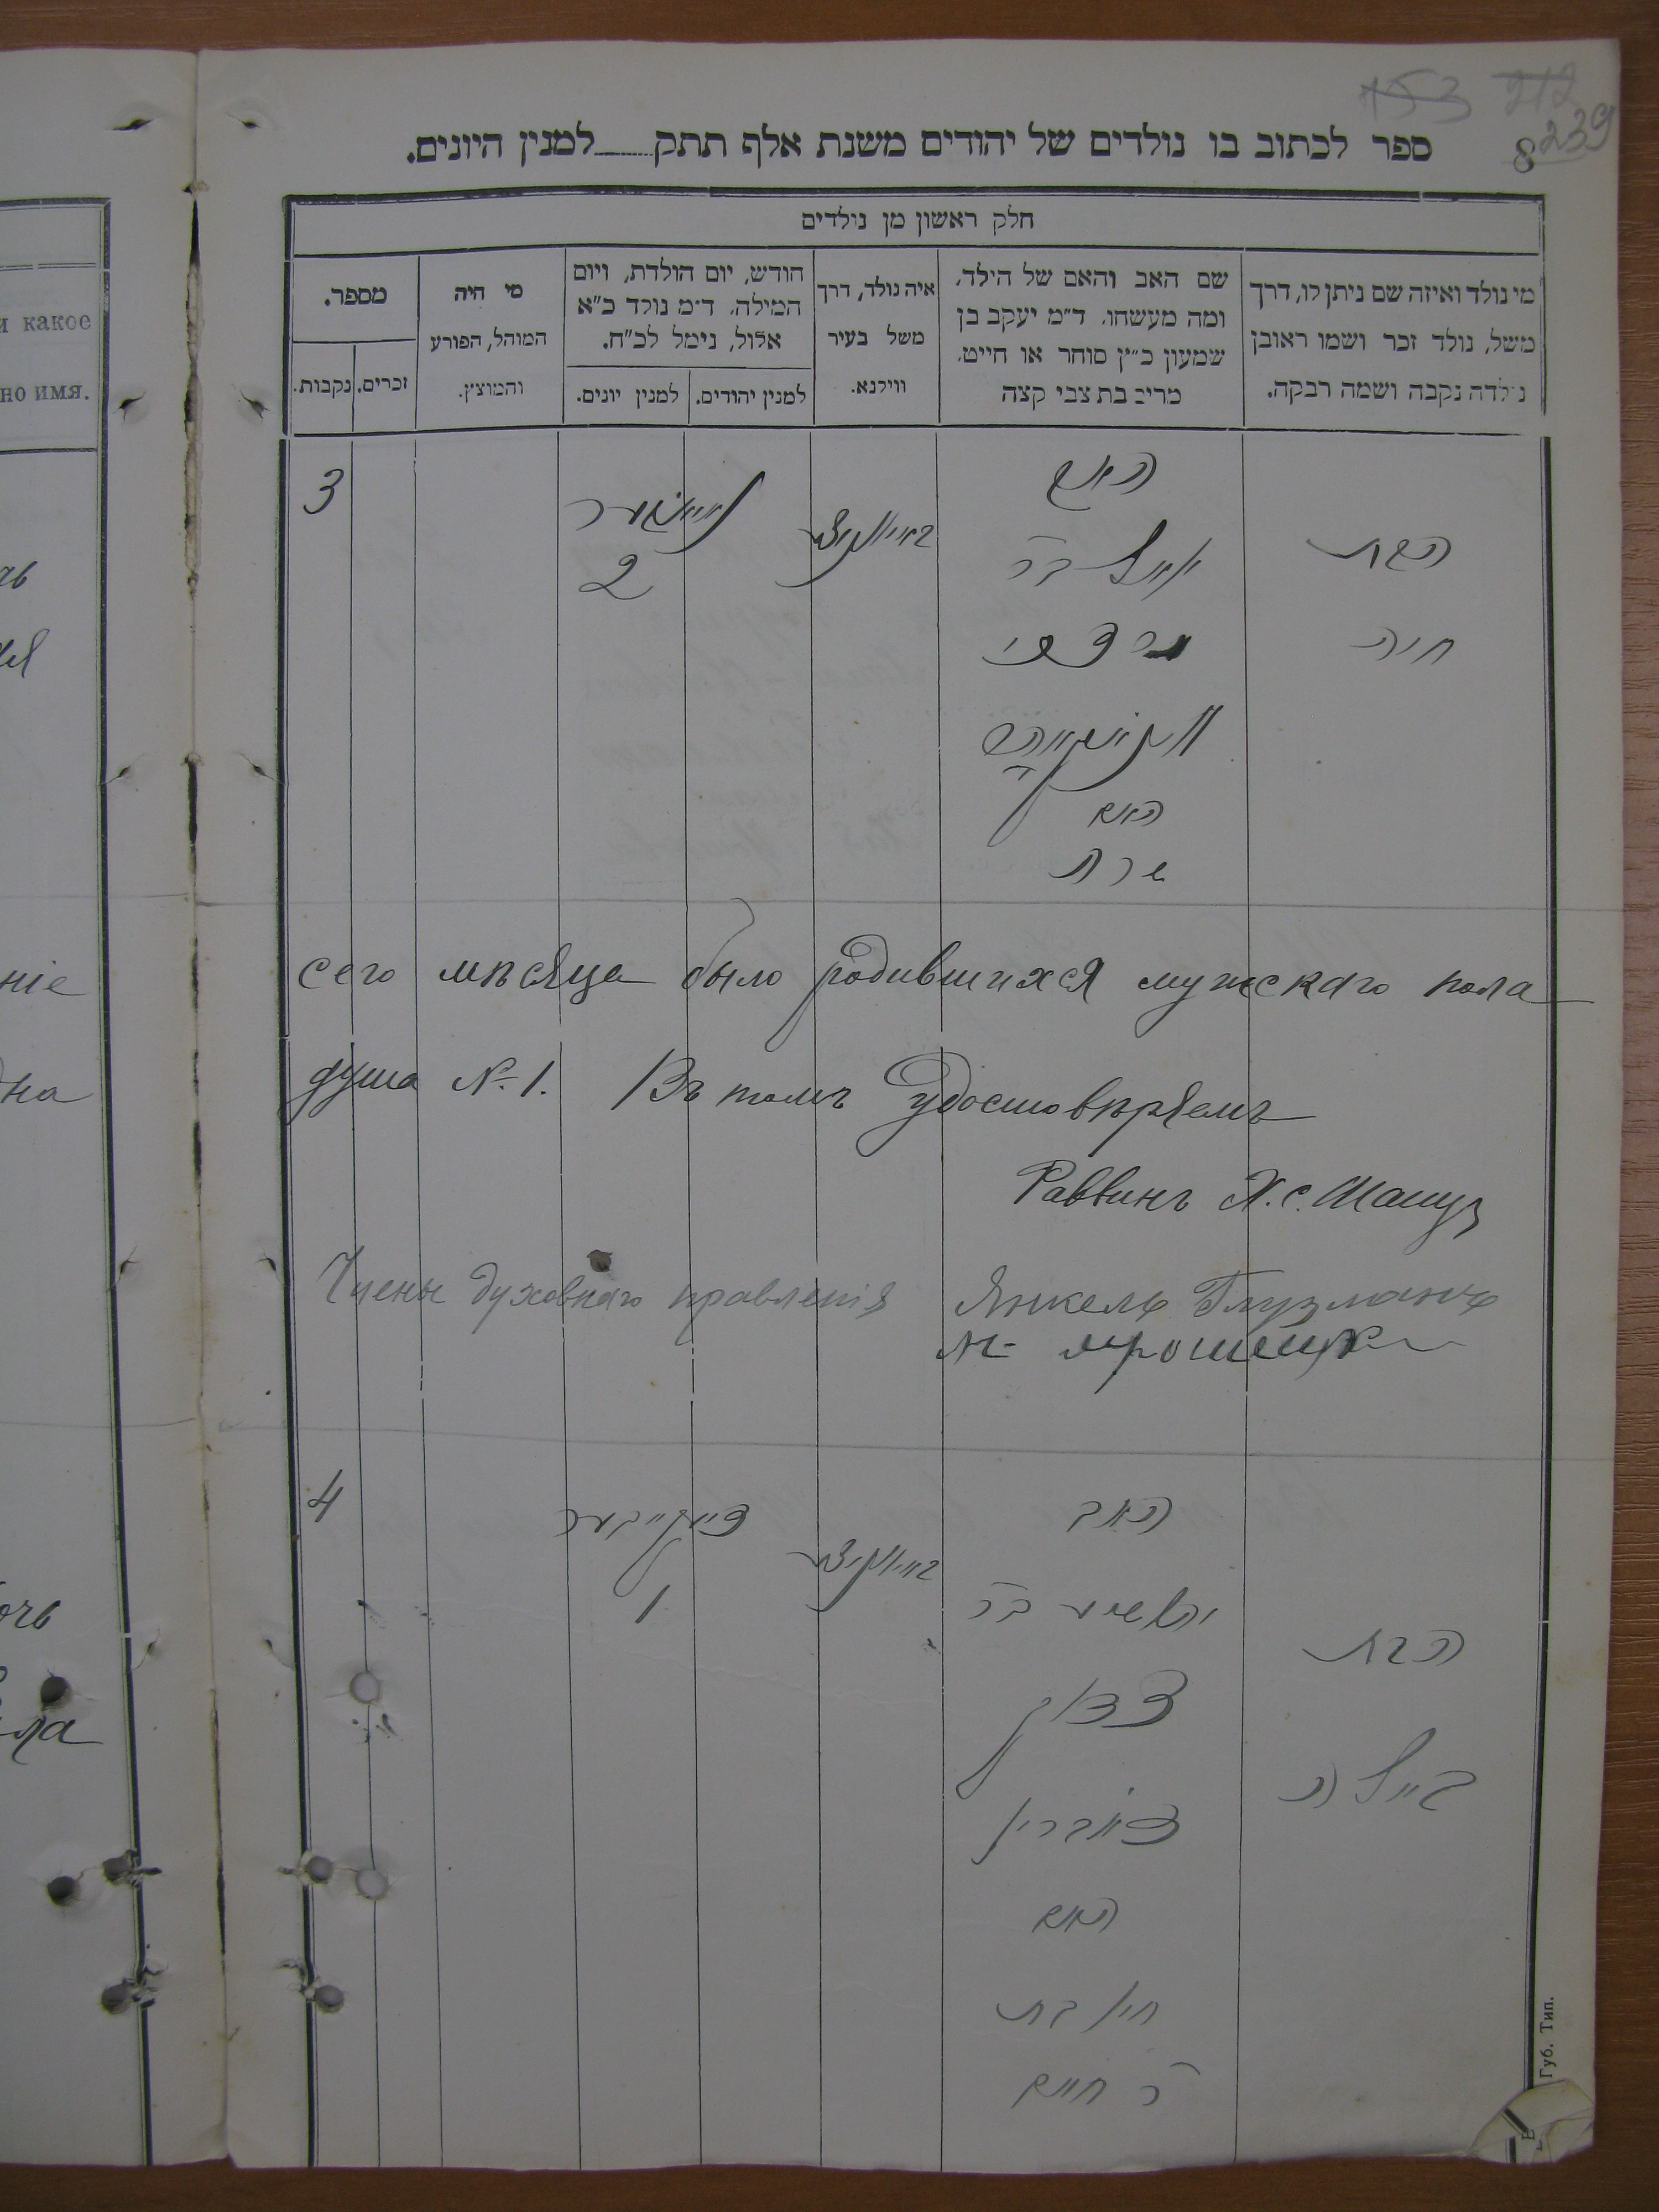 153 212
239
8
ספר לכתוב בו נולדים של יהודים משנת אלף תתק____למנין היונים.
חלק ראשון מן נולדים
מי נולד ואיזה שם ניתן לו, דרך
משל, נולד זכר ושמו ראובן
נולדה נקבה ושמה רבקה.
שם האב והאם של הילד,
ומה מעשהו. ד״מ יעקב בן
שמעון כ״ץ סוחר או חייט,
מרים בת צבי קצה
איה נולד, דרך
משל בעיר
ווילנא.
חודש, יום הולדת, ויום
המילה. ד״מ נולד כ״א
אלול, נימל לכ״ח.
למנין יהודים.
למנין יונים.
מי היה
המוהל, הפורע
והמוצץ.
מספר.
זכרים.
נקבות.
и какое
но имя.
3
יאנוואר
2
האב
יואל בר
האם
שרה
הבת
חיה
сего мѣсяца было родившихся мужскаго пола
душа №-1. Въ томъ удостовѣряемъ
Раввинъ Х. С.
Члены духовнаго правленія Янкель Глузманъ
4
1
האב
יהושיע בר
צדוק
האם
חי׳ בת
ר חיים
הבת
ביילה
ніе
на
очь
ла
Губ. Тип.